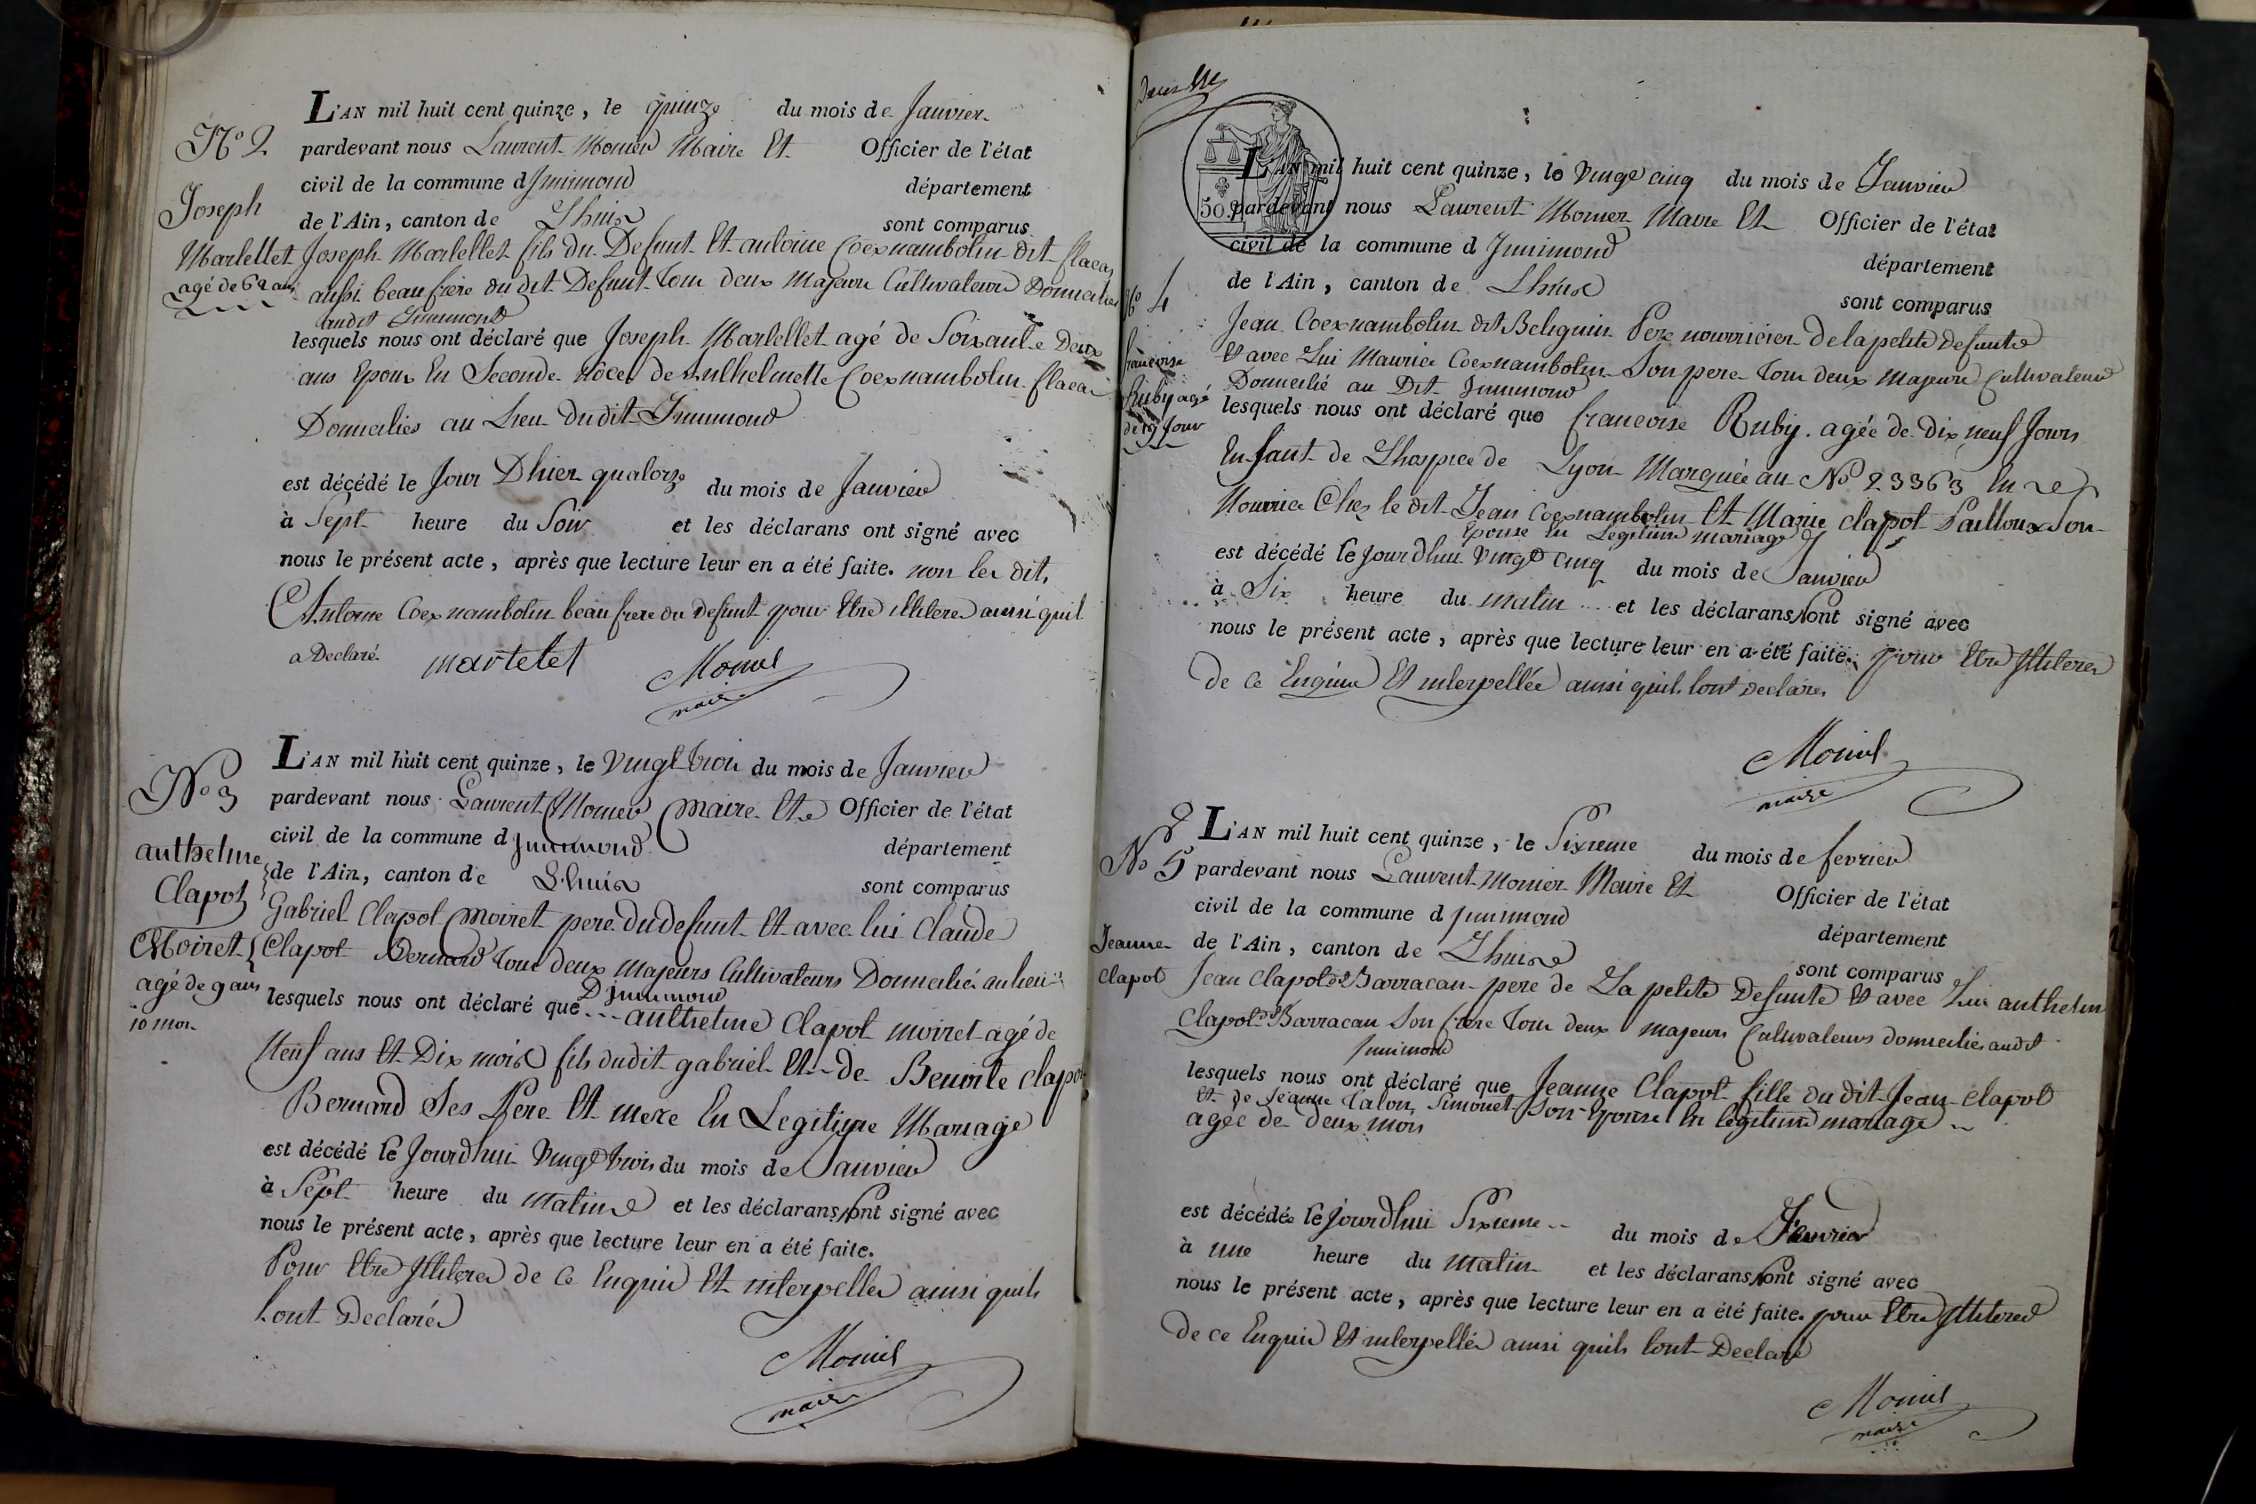 No 2
Joseph
Martellet
agé de 62 ans
L'AN mil huit cent quinze, le quinze du mois de Janvier
pardevant nous Laurent Monier Maire Et Officier de l'état
civil de la commune d Jnnimond département
de l'Ain, canton de Lhuis sont comparus
Joseph Martellet fils du Defunt Et antoine Coexnambolin dit flacas
aussi beaufrere du dit Defunt Tous deux Majeurs Cultivateurs Domiciliés
audit Jnnimond
lesquels nous ont déclaré que Joseph Martellet agé de Soixante Deux
ans Epoux En Seconde nôces de Coexnambolin flacas
Domiciliés au Lieu dudit Jnnimond
est décédé le Jour Dhier quatorze du mois de Janvier
à Sept heure du Soir et les déclarans ont signé avec
nous le présent acte, après que lecture leur en a été faite. non les dits
Antoine Coexnambolin beaufrere du defunt pour Etre illiteré ainsi quil
a Declaré.
martelet Monier
maire
No 3
anthelme
Clapot
Moiret
agé de 9 ans
10 mois
L'AN mil huit cent quinze, le Vingt trois du mois de Janvier
pardevant nous Laurent Monier Maire Et Officier de l'état
civil de la commune d Jnnimond département
de l'Ain, canton de Lhuis sont comparus
Gabriel Clapot Moiret pere du defunt Et avec lui Claude
Clapot Bernard Tous deux Majeurs Cultivateurs Domiciliés au lieu
D Jnnimond
lesquels nous ont déclaré que anthelme Clapot moiret agé de
Neuf ans et Dix mois fils dudit gabriel Et de Benoite Clapot
Bernard Ses Pere Et mere En Legitime Mariage
est décédé le Jourdhui Vingt trois du mois de Janvier
à Sept heure du Matin et les déclarans nont signé avec
nous le présent acte, après que lecture leur en a été faite.
Pour Etre Jlliterés de Ce Enquis Et interpellés ainsi quils
lont Declarés
Monier
maire
50
No 4
francoise
Ruby agé
de 19 Jour
L'AN mil huit cent quinze, le Vingt cinq du mois de Janvier
pardevant nous Laurent Monier Maire Et Officier de l'état
civil de la commune d Jnnimond département
de l'Ain, canton de Lhuis sont comparus
Jean Coexnambolin dit Beliguin Pere nourricier de la petite defunte
Et avec Lui Maurice Coexnambolin Son pere Tous deux Majeurs Cultivateurs
Domicilié au Dit Jnnimond
lesquels nous ont déclaré que francoise Ruby. agée de Dix neuf Jours
Enfant de Lhospice de Lyon Marquée au No 23363 En
Nourrice Chez le dit Jean Coexnambolin Et Marie Clapot Pailloux Son
Epouse En Legitime mariage
est décédé le Jourdhui Vingt cinq du mois de Janvier
à Six heure du matin et les déclarans nont signé avec
nous le présent acte, après que lecture leur en a été faite. pour Etre Jlliterés
de Ce Enquis Et interpellés ainsi quils lont declarés
Monier
maire
No 5
Jeanne
Clapot
L'AN mil huit cent quinze, le Sixieme du mois de fevrier
pardevant nous Laurent Monier Maire Et Officier de l'état
civil de la commune d Jnnimond département
de l'Ain, canton de Lhuis sont comparus
Jean Clapot dt Barracan pere de La petite Defunte Et avec Lui anthelme
Clapot dt Barracan Son frere Tous deux majeurs Cultivateurs domiciliés audit
Jnnimond
lesquels nous ont déclaré que Jeanne Clapot fille du dit Jean Clapot
Et de Jeanne Talon Simonet Son Epouse En legitime mariage
agée de deux mois
est décédée le jourdhui Sixieme du mois de Fevrier
à une heure du Matin et les déclarans nont signé avec
nous le présent acte, après que lecture leur en a été faite. pour Etre Jlliterés
de ce Enquis Et interpellés ainsi quils lont Declaré
Monier
maire